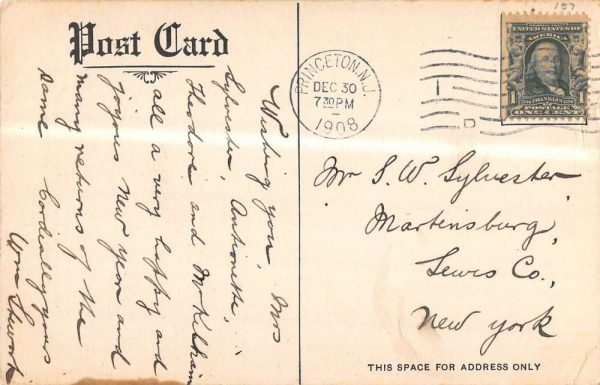 Post Card
PRINCETON, N.J.
DEC 30
7 30 PM
1908
157
UNITED STATES OF AMERICA
FRANKLIN
POSTAGE
1 ONE CENT 1
D
Wishing you, Mrs
Sylvester, Antionette,
Theodore and McKilham
all a very happy and
joyous New Year and
many returns of the
same Cordially yours
Wm
Mr S. W. Sylvester
Martinsburg,
Lewis Co.,
New York
THIS SPACE FOR ADDRESS ONLY